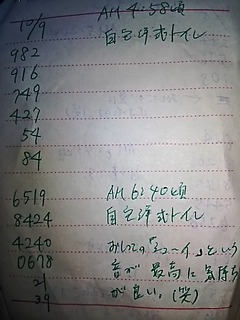 12/9 AM 4:58頃
982 自宅洋式トイレ
916
749
427
54
84
6519 AM 6:40頃
8424 自宅洋式トイレ
4240 おしっこの「シューイ」という
0678 音が最高に気持ち
21 が良い。(笑)
39